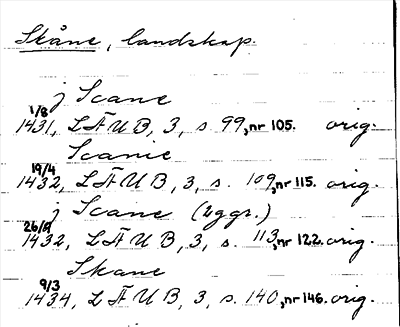 Skåne, landskap.
j Scane
1/8
1431, LÄUB, 3, s. 99, nr 105. orig.
Scanie
19/4
1432, LÄUB, 3, s. 109, nr 115. orig.
j Scane (2ggr.)
26/9
1432, LÄUB, 3, s. 113, nr 122. orig.
Skane
9/3
1434, LÄUB, 3, s. 140, nr 146. orig.